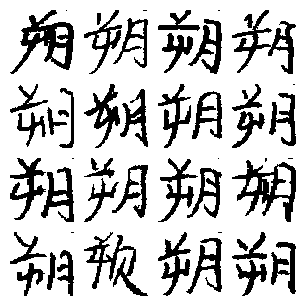 朔朔朔朔
朔朔朔朔
朔朔朔朔
朔欮朔朔